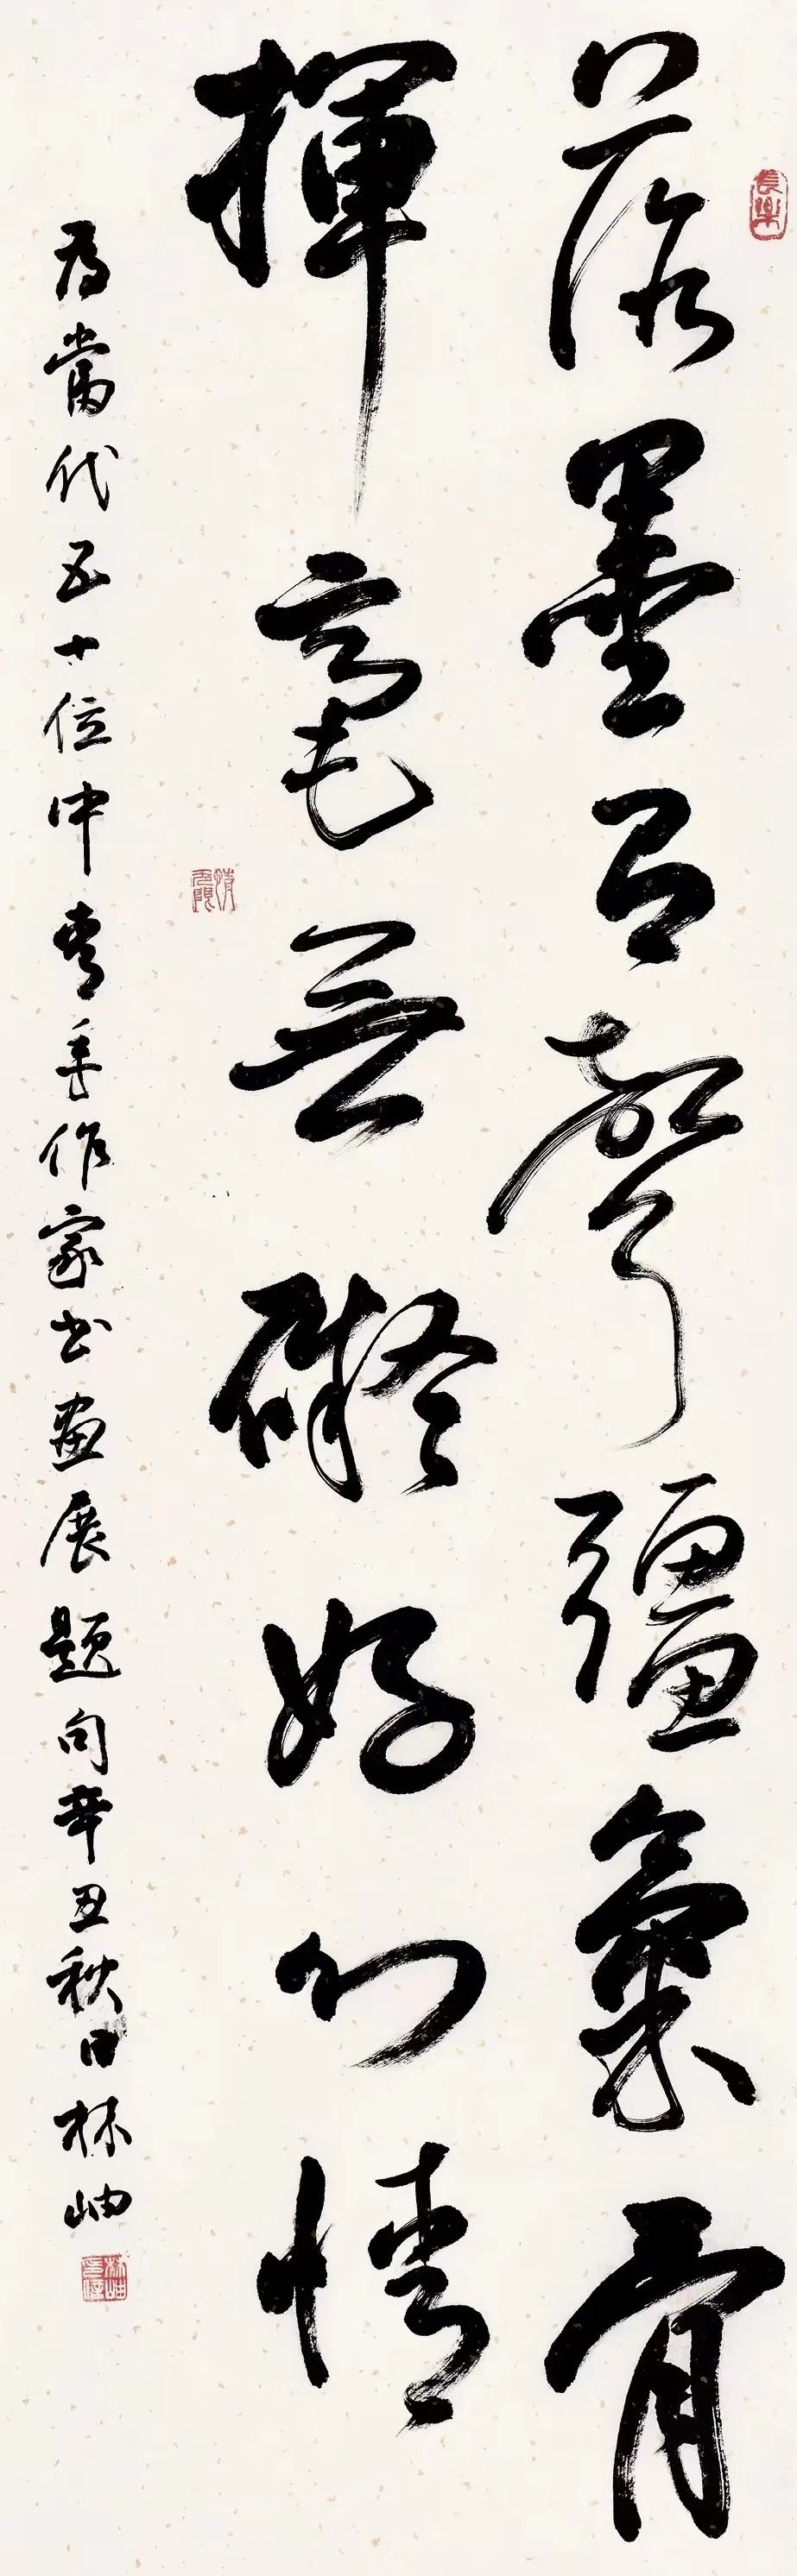 落墨有聲彊氣骨
揮毫無礙好心情
為當代五十位中青年作家書畫展題句辛丑秋日林岫
長樂